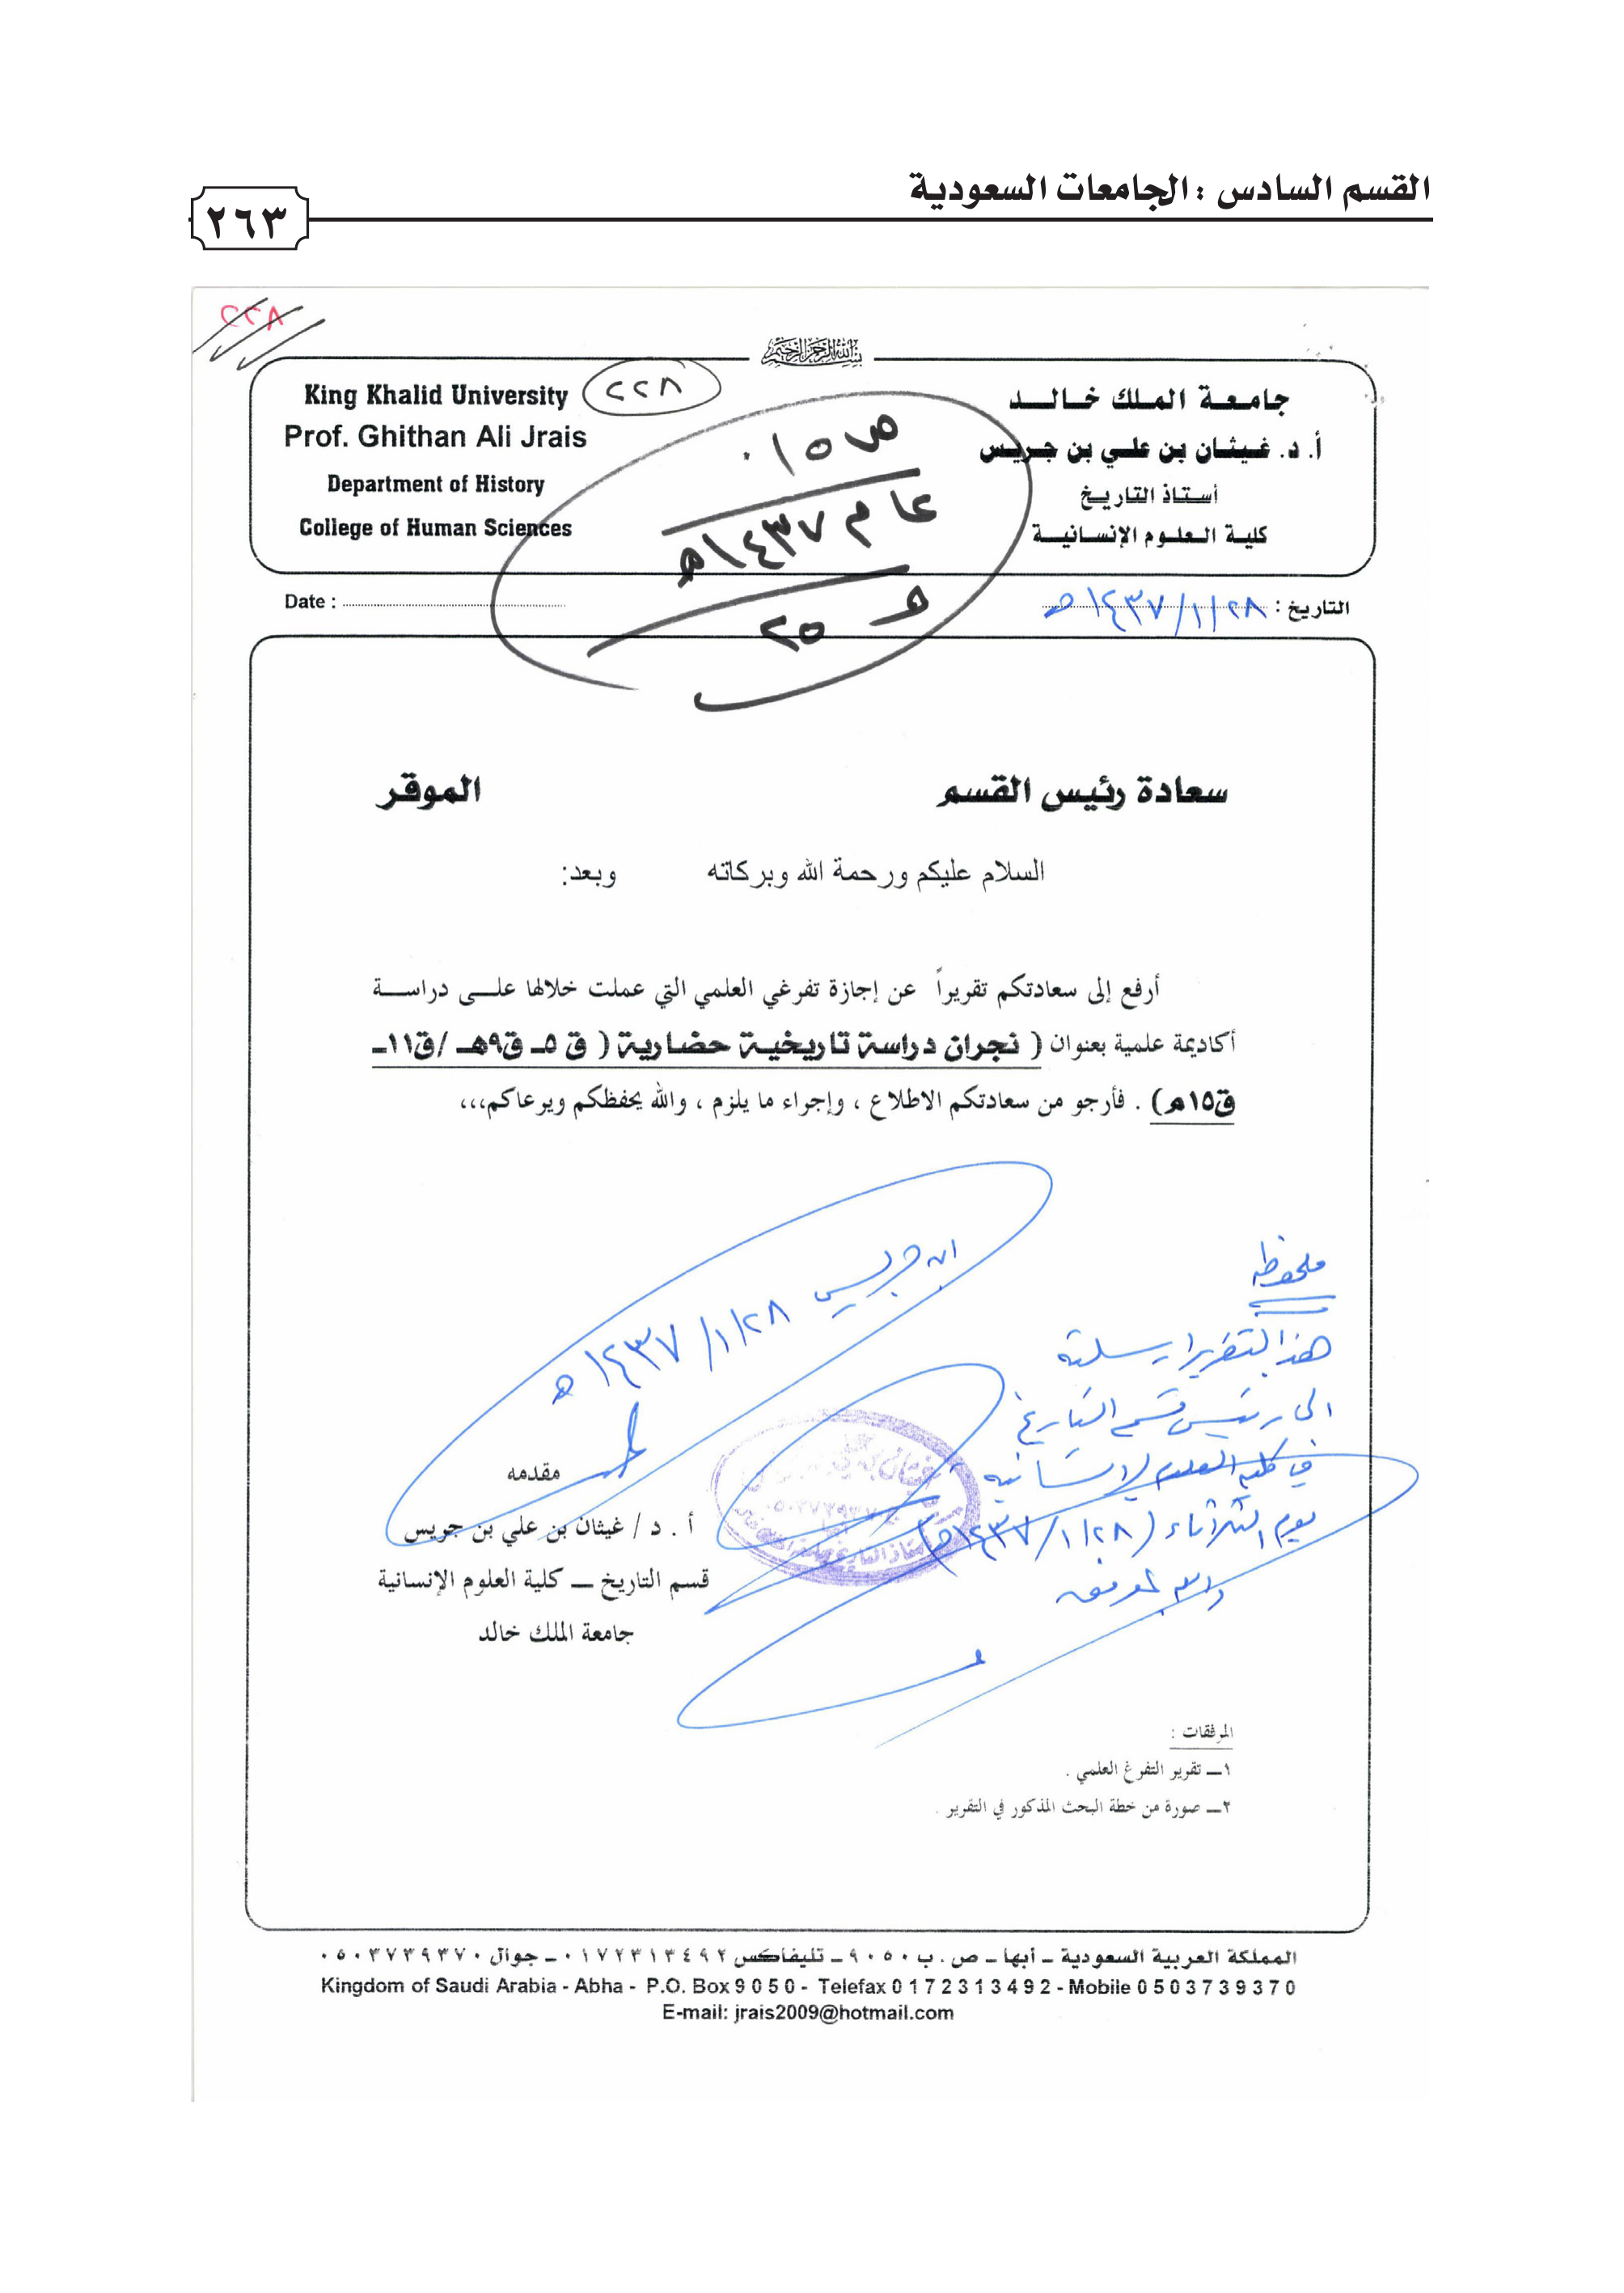 القسم السادس : الجامعات السعودية
٢٦٣
٢٢٨
بسم الله الرحمن الرحيم
King Khalid University
Prof. Ghithan Ali Jrais
Department of History
College of Human Sciences
٢٢٨
جامعة الملك خالد
أ. د. غيثان بن علي بن جريس
أستاذ التاريخ
كلية العلوم الإنسانية
عام ١٤٣٧هـ
Date :
التاريخ : ١٤٣٧/١/٢٨هـ
سعادة رئيس القسم الموقر
السلام عليكم ورحمة الله وبركاته وبعد:
أرفع إلى سعادتكم تقريراً عن إجازة تفرغي العلمي التي عملت خلالها على دراسة
أكاديمة علمية بعنوان ( نجران دراسة تاريخية حضارية ( ق ٥ـ ق٩هـ /ق١١ـ
ق١٥م) . فأرجو من سعادتكم الاطلاع ، وإجراء ما يلزم ، والله يحفظكم ويرعاكم،،،
ابن جريس
١٤٣٧/١/٢٨هـ
مقدمه
أ . د / غيثان بن علي بن جريس
قسم التاريخ ــ كلية العلوم الإنسانية
جامعة الملك خالد
ملحوظة
هذا التقرير ارسلته
الى رئيس قسم التاريخ
في كلية العلوم الإنسانية
يوم الثلاثاء (١٤٣٧/١/٢٨هـ)
والله الموفق
المرفقات :
١ــ تقرير التفرغ العلمي .
٢ــ صورة من خطة البحث المذكور في التقرير .
المملكة العربية السعودية ـ أبها ـ ص . ب ٩٠٥٠ ـ تليفاكس ٠١٧٢٣١٣٤٩٢ ـ جوال ٠٥٠٣٧٣٩٣٧٠
Kingdom of Saudi Arabia - Abha - P.O. Box 9 0 5 0 - Telefax 0 1 7 2 3 1 3 4 9 2 - Mobile 0 5 0 3 7 3 9 3 7 0
E-mail: jrais2009@hotmail.com